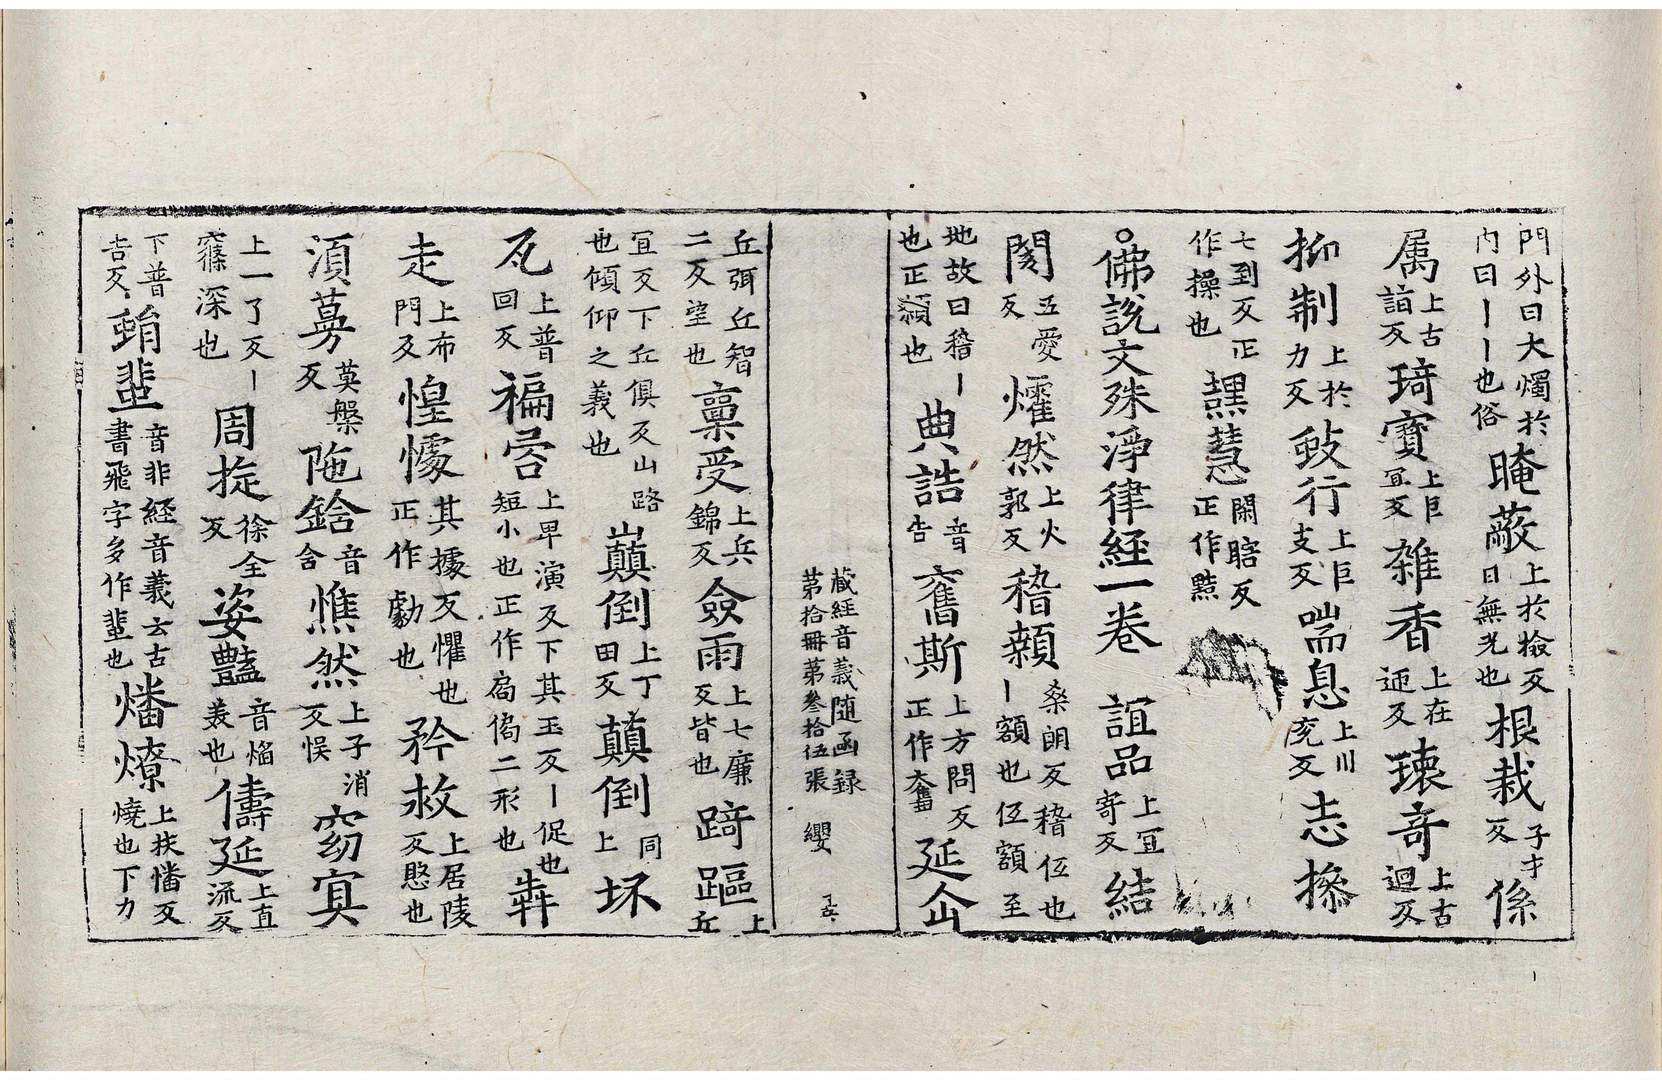 門外曰大燭於內曰丨丨也俗晻蔽上於檢反日無光也根栽子才反係
属上古詣反琦寳上巨冝反雜香上在迊反瓌奇上古迴反
抑制上於力反跂行上巨支反喘息上川兖反志㨾
七到反正作操也譿慧閑瞎反正作黠
○佛說文殊淨律經一卷　誼品上冝寄反結
閡五愛反㸌然上火郭反稽顙桑朗反稽伍也丨額也伍額至
地故曰稽丨也正顙也典誥音告奮斯上方問反正作奮延企
藏經音義随函録第拾冊第叄拾伍張　纓
丘弭丘智二反望也稟受上兵錦反僉雨上七廉反皆也踦䡱上丘
冝反下丘俱反山路也傾仰之義也巔倒上丁田反蕦倒同上坏
瓦上普回反褊㕯上卑演反下其玉反丨促也短小也正作扃傐二形也犇
走上布門反惶懅其據反懼也正作勮也矜救上居陵反愍也
湏蒡莫槃反陁鋡音含憔然上子消反悮窈㝠
上一了反丨窱深也周旋徐全反姿豔音焰羙也儔延上直流反
下普告反蜎蜚音非経音義云古書飛字多作蜚也燔燎上扶㡒反燒也下力